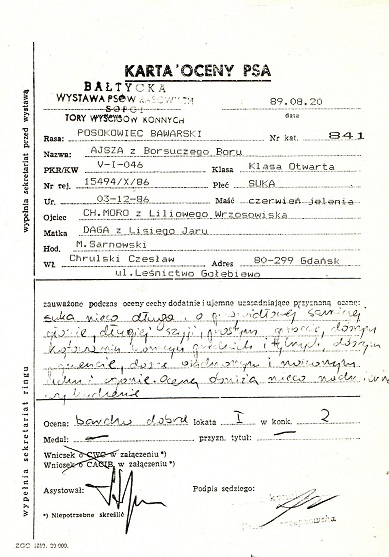 KARTA OCENY PSA
BAŁTYCKA
WYSTAWA PSÓW RASOWYCH
SOPOT
TORY WYŚCIGÓW KONNYCH
89.08.20
data
Rasa: POSOKOWIEC BAWARSKI
Nr kat. 841
Nazwa: AJSZA z Borsuczego Boru
PKR/KW V-I-046 Klasa Klasa Otwarta
Nr rej. 15494/X/86 Płeć SUKA
Ur. 03-12-86 Maść czerwień jelenia
Ojciec CH.MORO z Liliowego Wrzosowiska
Matka DAGA z Lisiego Jaru
Hod. M.Sarnowski
Wł. Chrulski Czesław Adres 80-299 Gdańsk
ul.Leśnictwo Gołebiewo
wypełnia sekretariat przed wystawą
zauważone podczas oceny cechy dodatnie i ujemne uzasadniające przyznaną ocenę:
suka nieco długa, o prawidłowej samiczej
głowie, długiej szyji, prostym grzbiecie, dobrym
kątowaniu kończyn przednich i tylnych, dobrym
pigmencie, dobrze
ruchu i ogonie. Ocenę obniża nieco
wypełnia sekretariat ringu
Ocena: bardzo dobra lokata I w konk. 2
Medal: — przyzn. tytuł: —
Wniosek o CWC w załączeniu *)
Wniosek o CACIB w załączeniu *)
Asystował: Podpis sędziego:
*) Niepotrzebne skreślić